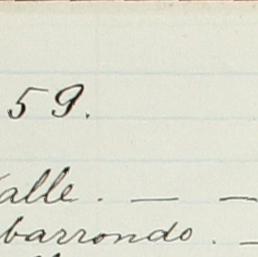 59.
alle. — —
barrondo. —